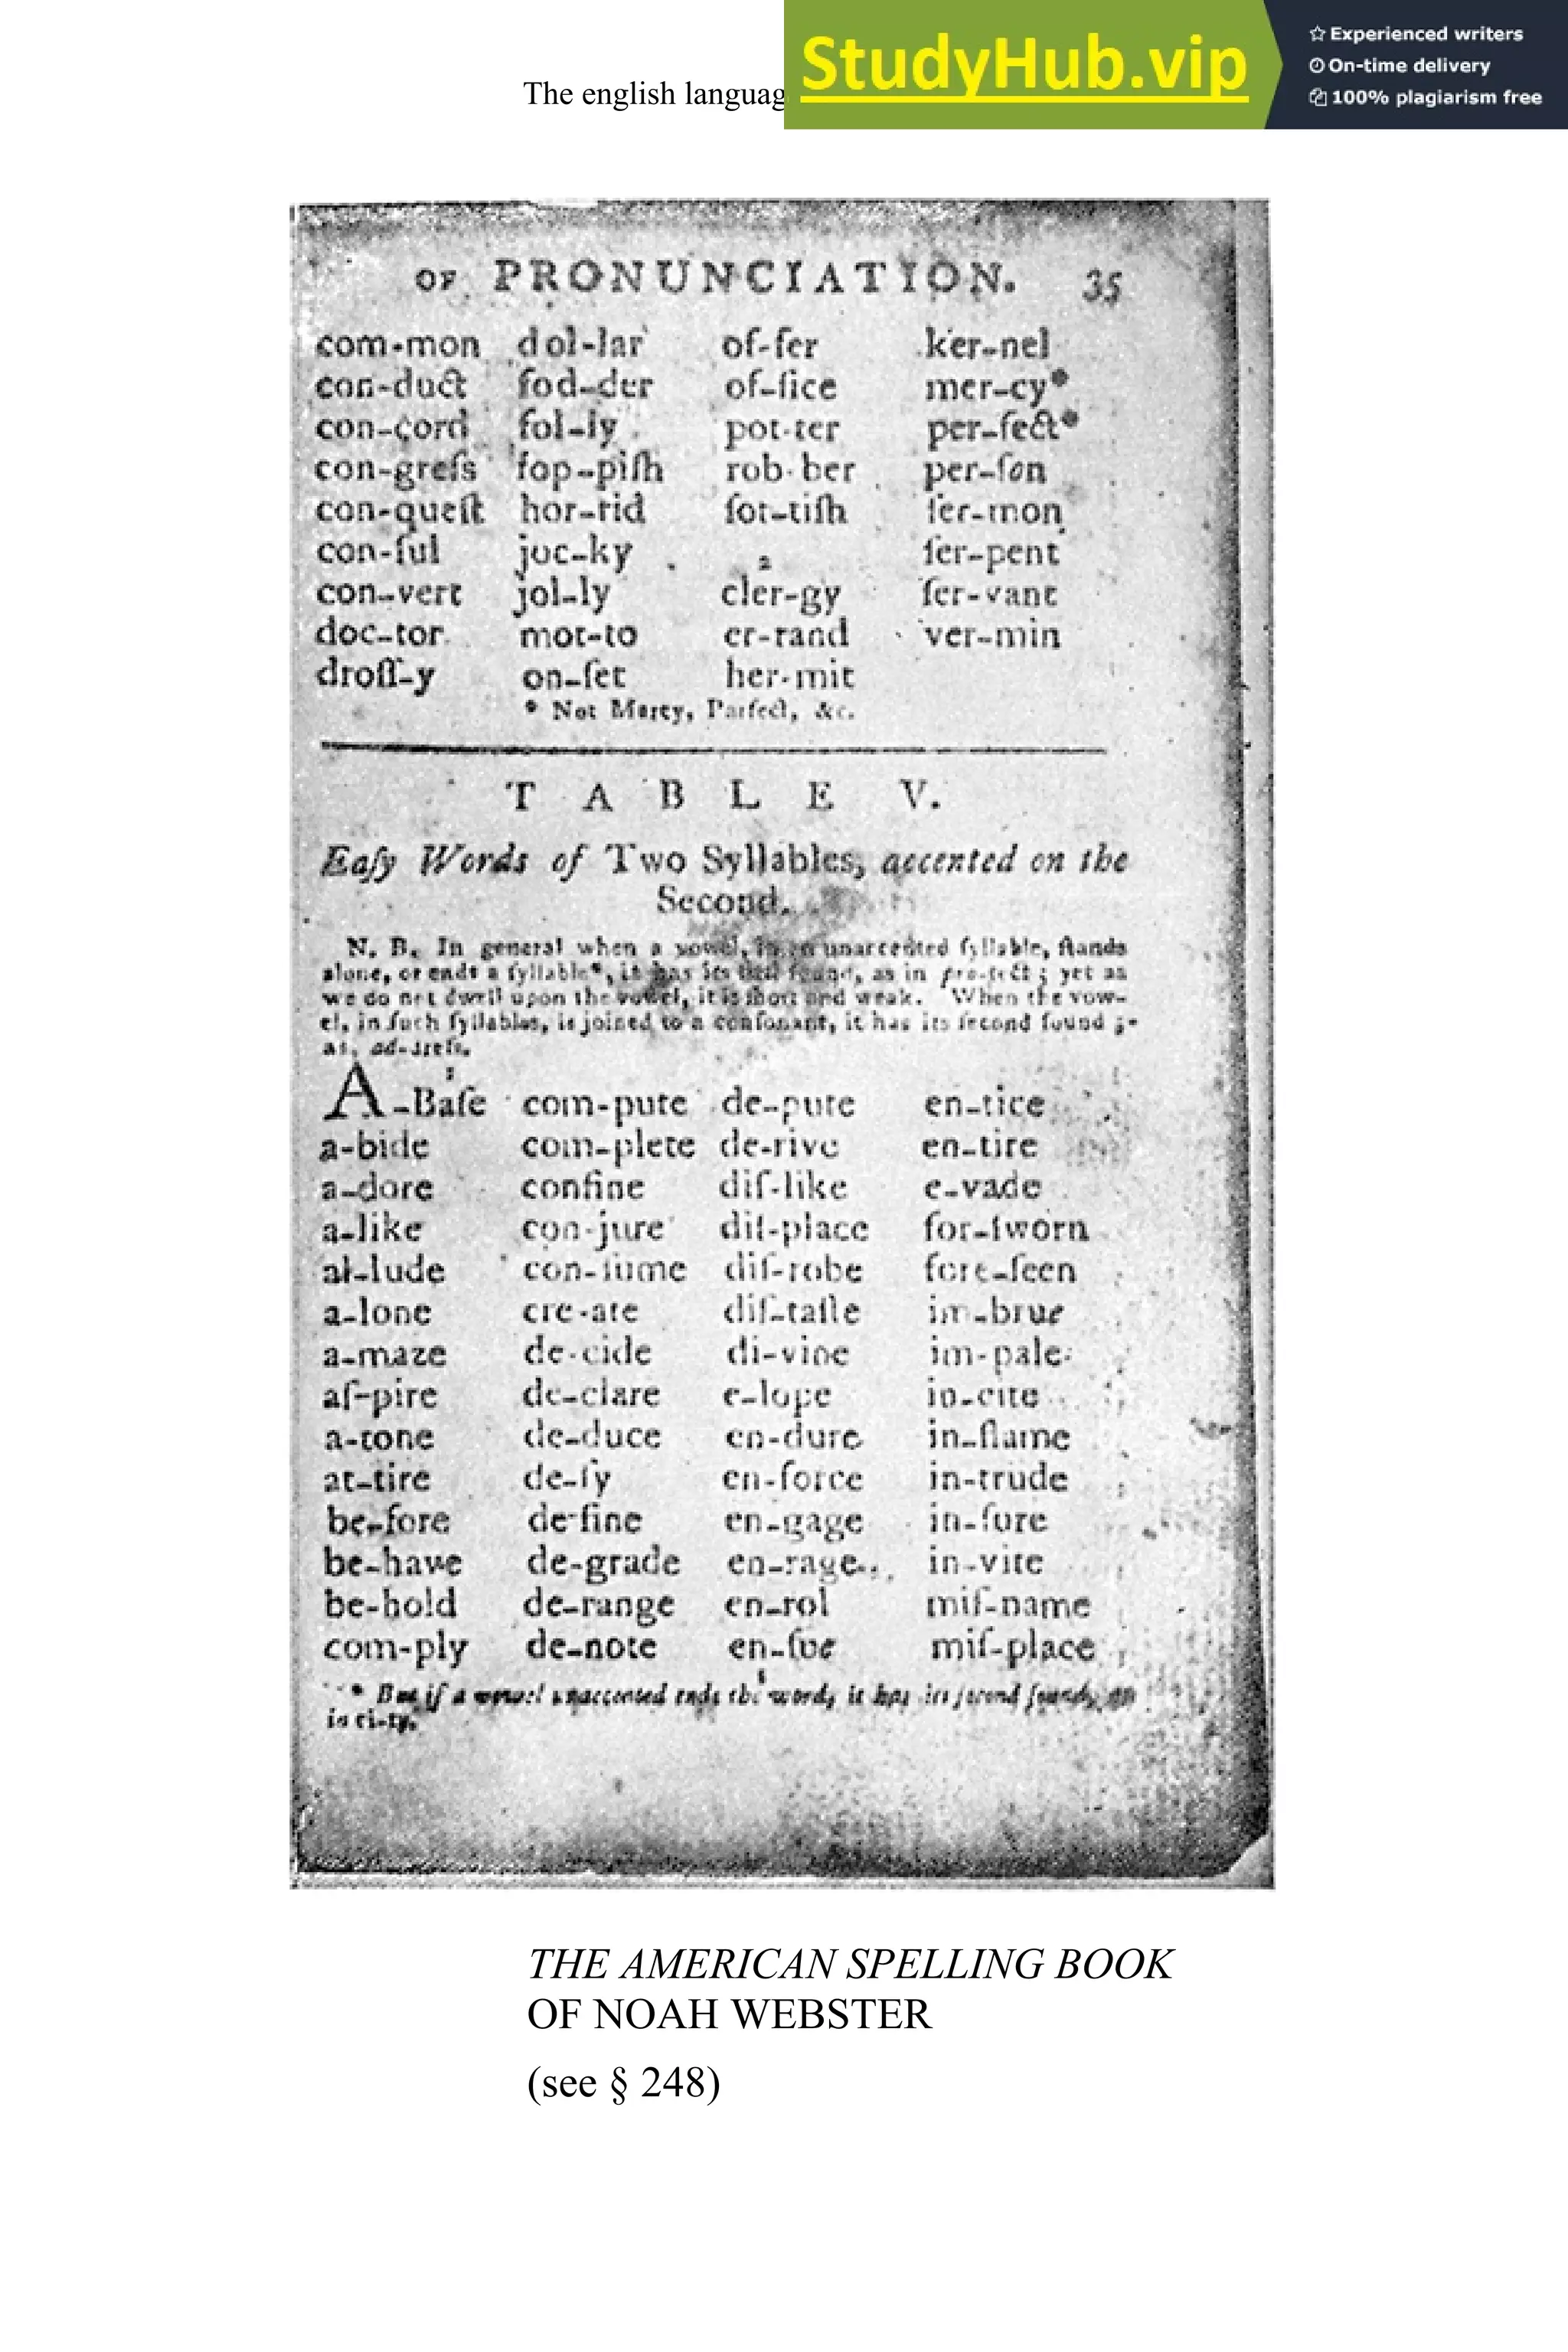 The english languag
StudyHub.vip
Experienced writers
On-time delivery
100% plagiarism free
OF PRONUNCIATION. 35
com-mon dol-lar of-fer ker-nel
con-duct fod-der of-fice mer-cy*
con-cord fol-ly pot-ter per-fect*
con-greſs fop-piſh rob-ber per-ſon
con-queſt hor-rid ſot-tiſh ſer-mon
con-ſul joc-ky 2 ſer-pent
con-vert jol-ly cler-gy ſer-vant
doc-tor mot-to er-rand ver-min
droſſ-y on-ſet her-mit
* Not Marcy, Parfect, &c.
TABLE V.
Eaſy Words of Two Syllables, accented on the
Second.
N. B. In general when a vowel, in an unaccented ſyllable, ſtands
alone, or ends a ſyllable*, it has its firſt ſound, as in pro-tect ; yet as
we do not dwell upon the vowel, it is ſhort and weak. When the vow-
el, in ſuch ſyllables, is joined to a conſonant, it has its ſecond ſound ;
as, ad-dreſs.
1
A-Baſe com-pute de-pute en-tice
a-bide com-plete de-rive en-tire
a-dore confine diſ-like e-vade
a-like con-jure diſ-place for-ſworn
al-lude con-ſume diſ-robe fore-ſeen
a-lone cre-ate diſ-taſte im-brue
a-maze de-cide di-vine im-pale
aſ-pire de-clare e-lope in-cite
a-tone de-duce en-dure in-flame
at-tire de-fy en-force in-trude
be-fore de-fine en-gage in-ſure
be-have de-grade en-rage in-vite
be-hold de-range en-rol miſ-name
com-ply de-note en-ſue miſ-place
* But if a vowel unaccented ends the word, it has its ſecond ſound, as
in ci-ty.
THE AMERICAN SPELLING BOOK
OF NOAH WEBSTER
(see § 248)